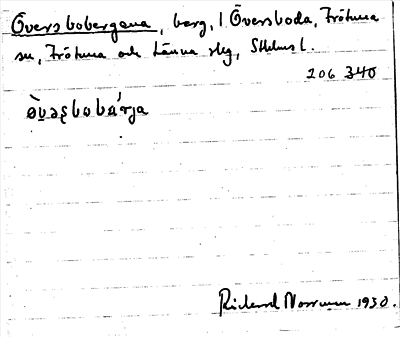 Översbobergena, berg, i Översboda, Frötuna
sn, Frötuna och Länna slg, Sthlms l.
206 340
ø̀vəʂbobárja
Rickard Norrman 1930.